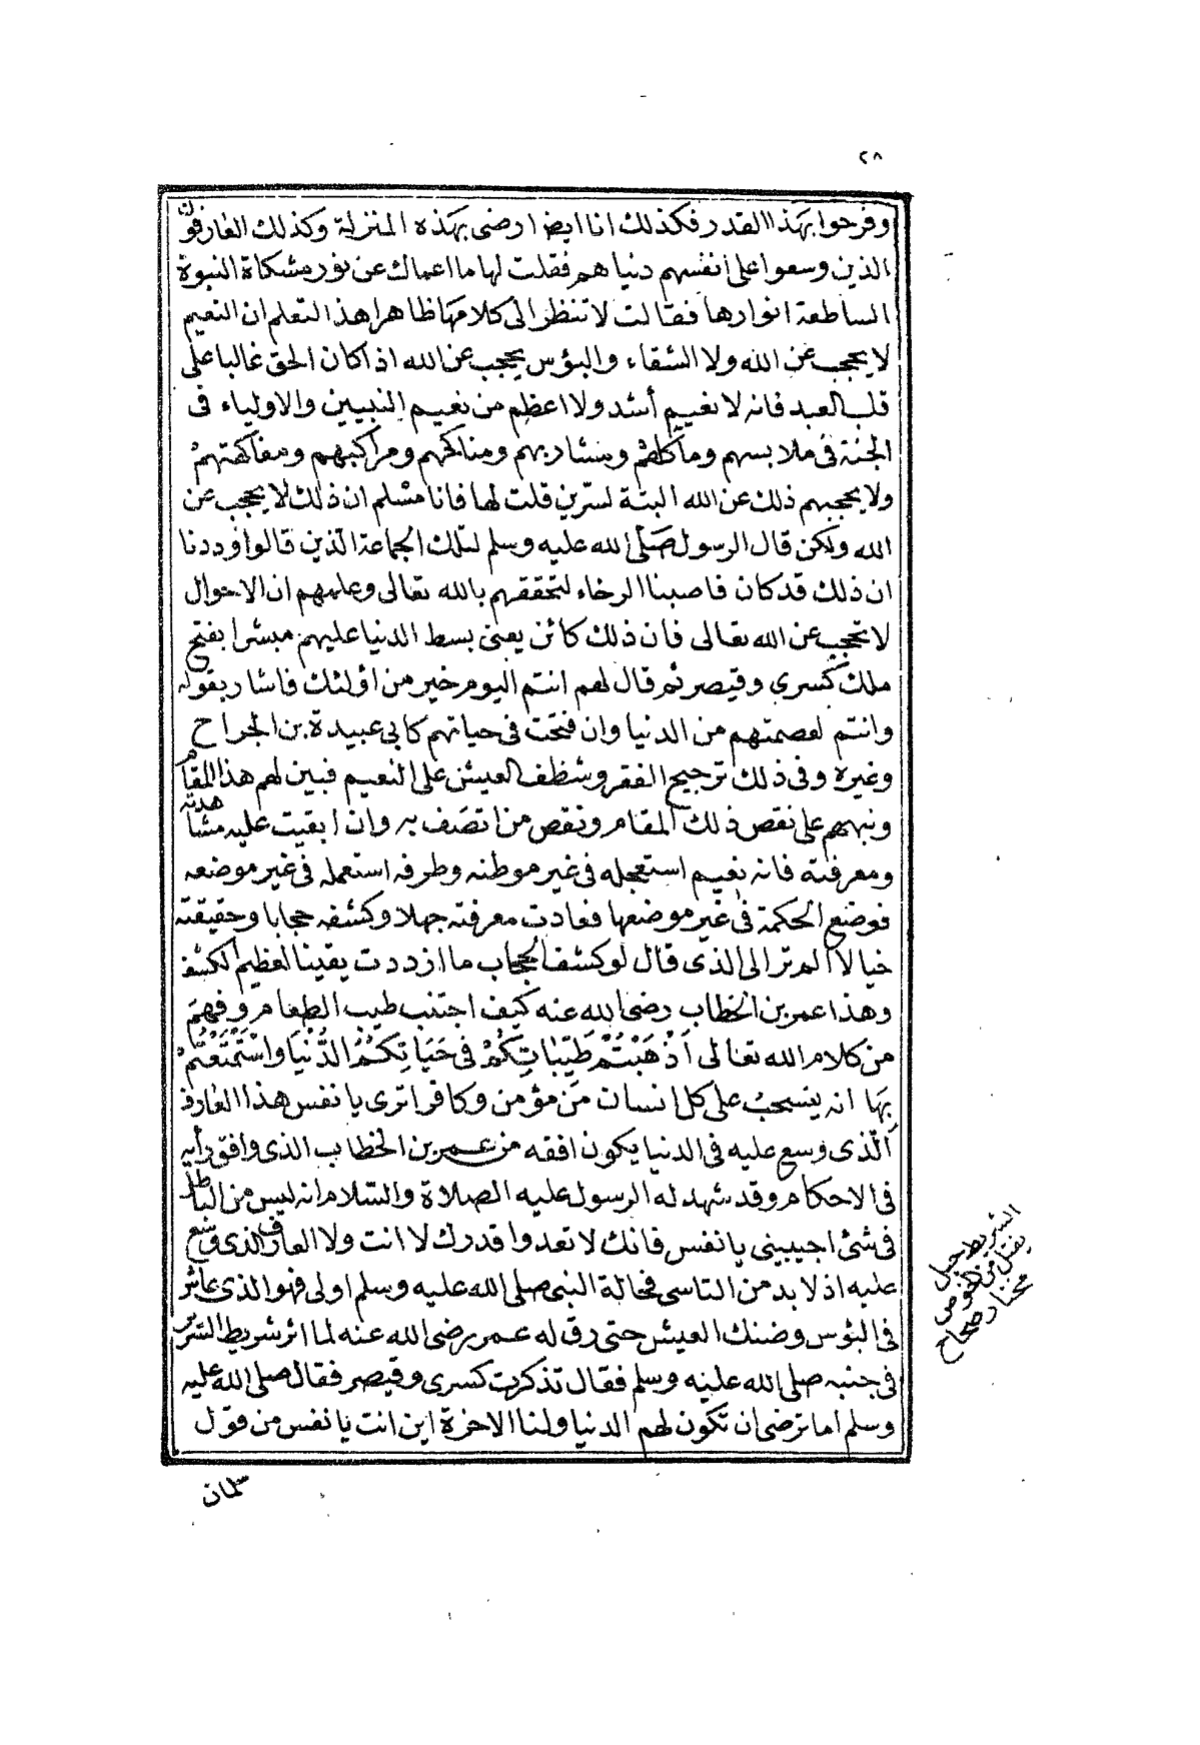 ٢٨
وفرحوا بهذا القدر فكذلك انا ايضا ارضى بهذه المنزلة وكذلك العارفون
الذين وسعوا على انفسهم دنياهم فقلت لها ما اعماك عن نور مشكاة النبوة
الساطعة انوارها فقالت لا تنظر الى كلامها ظاهرا هذا التعلم ان النعيم
لا يحجب عن الله ولا الشقاء والبؤس يحجب عن الله اذا كان الحق غالبا على
قلب العبد فانه لا نعيم أشد ولا اعظم من نعيم النبيين والاولياء فى
الجنة فى ملابسهم ومآكلهم ومشاربهم ومناكحهم ومراكبهم ومفاكهتهم
ولا يحجبهم ذلك عن الله البتة لسرّين قلت لها فانا مسّلم ان ذلك لا يحجب عن
الله ولكن قال الرسول صلّى الله عليه وسلم لتلك الجماعة الّذين قالوا وددنا
ان ذلك قد كان فاصبنا الرخاء لتحققهم بالله تعالى وعلمهم ان الاحوال
لا تحجب عن الله تعالى فان ذلك كائن يعنى بسط الدنيا عليهم مبشرا بفتح
ملك كسرى وقيصر ثم قال لهم انتم اليوم خير من اؤلئك فاشار بقوله
وانتم لعصمتهم من الدنيا وان فتحت فى حياتهم كابى عبيدة بن الجراح
وغيره وفى ذلك ترجيح الفقر وشظف العيش على النعيم فبين لهم هذا المقام
ونبههم على نقص ذلك المقام ونقص من اتصَف به وان ابقيت عليه مشاهدته
ومعرفته فانه نعيم استعجله فى غير موطنه وطرفه استعمله فى غير موضعه
فوضع الحكمة فى غير موضعها فعادت معرفته جهلا وكشفه حجابا وحقيقته
خيالا الم تر الى الذى قال لو كشف الحجاب ما ازددت يقينا لعظيم الكشف
وهذا عمر بن الخطاب رضى الله عنه كيف اجتنب طيب الطعام وفهم
من كلام الله تعالى اَذْهَبْتُمْ طَيِّبَاتِكُمْ فى حَيَاتِكُمُ الدُّنْيَا وَاسْتَمْتَعْتُمْ
بِهَا انه ينسحب على كل انسان من مؤمن وكافر اترى يا نفس هذا العارف
الّذى وسع عليه فى الدنيا يكون افقه من عمر بن الخطاب الذى وافق رأيه
فى الاحكام وقد شهد له الرسول عليه الصلاة والسّلام انه ليس من الباطل
فى شئ اجيبينى يا نفس فانك لا تعدوا قدرك لا انت ولا العارف الذى وسع
عليه اذ لا بد من التاسى فحالة النبى صلى الله عليه وسلم اولى فهو الذى عاش
فى البؤس وضنك العيش حتى رق له عمر رضى الله عنه لما اثر شريط السّرير
فى جنبه صلى الله عليه وسلم فقال تذكرت كسرى وقيصر فقال صلى الله عليه
وسلم اما ترضى ان تكون لهم الدنيا ولنا الاخرة اين انت يا نفس من قول
سلمان
الشريط حبل
يفتل من الخوص
مختار صحاح